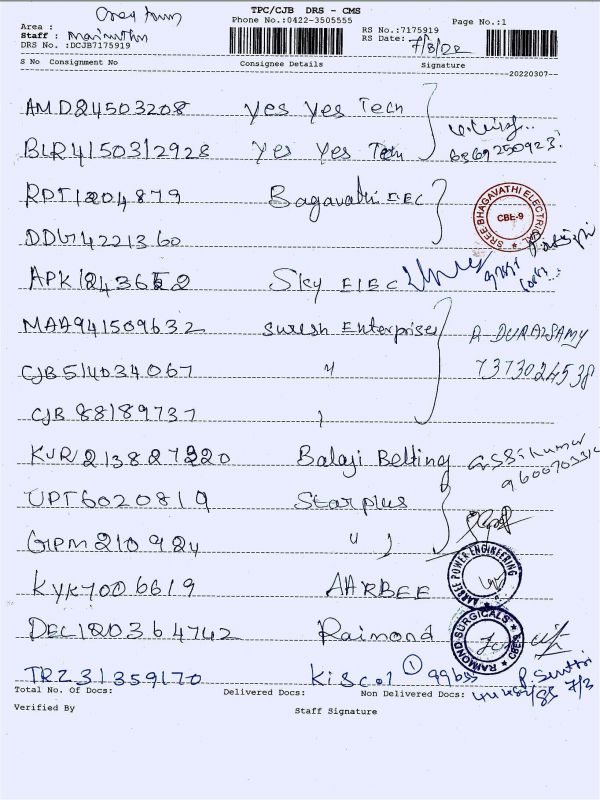 TPC/CJB DRS - CMS
Phone No.:0422-3505555
Page No.:1
Area :
Staff :
DRS No. :DCJB7175919
RS No.:7175919
RS Date: 7/3/22
S No Consignment No Consignee Details Signature
20220307
AMD24503208 yes yes Tech
BLR4150312928 yes yes Tech
6369250923
RPT1204879 Bagavathi ELEC
SREE BHAGAVATHI ELECTRICAL
CBE-9
DDG14221360
Sky ELEC
MAA941509632 Suresh Enterprises R. DURAISAMY
CJB514034067 " 7373024538
CJB 88189737 "
KUR213827220 Balaji Belting
UPT6020819 Starplus
GPM210924 "
KYK7006619 AARBEE
AARBEE POWER ENGINEERING
DEL120364742 Raimond
RAIMOND SURGICALS
TRZ31359170 Kiscol 1
7/3
Total No. Of Docs: Delivered Docs: Non Delivered Docs:
Verified By Staff Signature